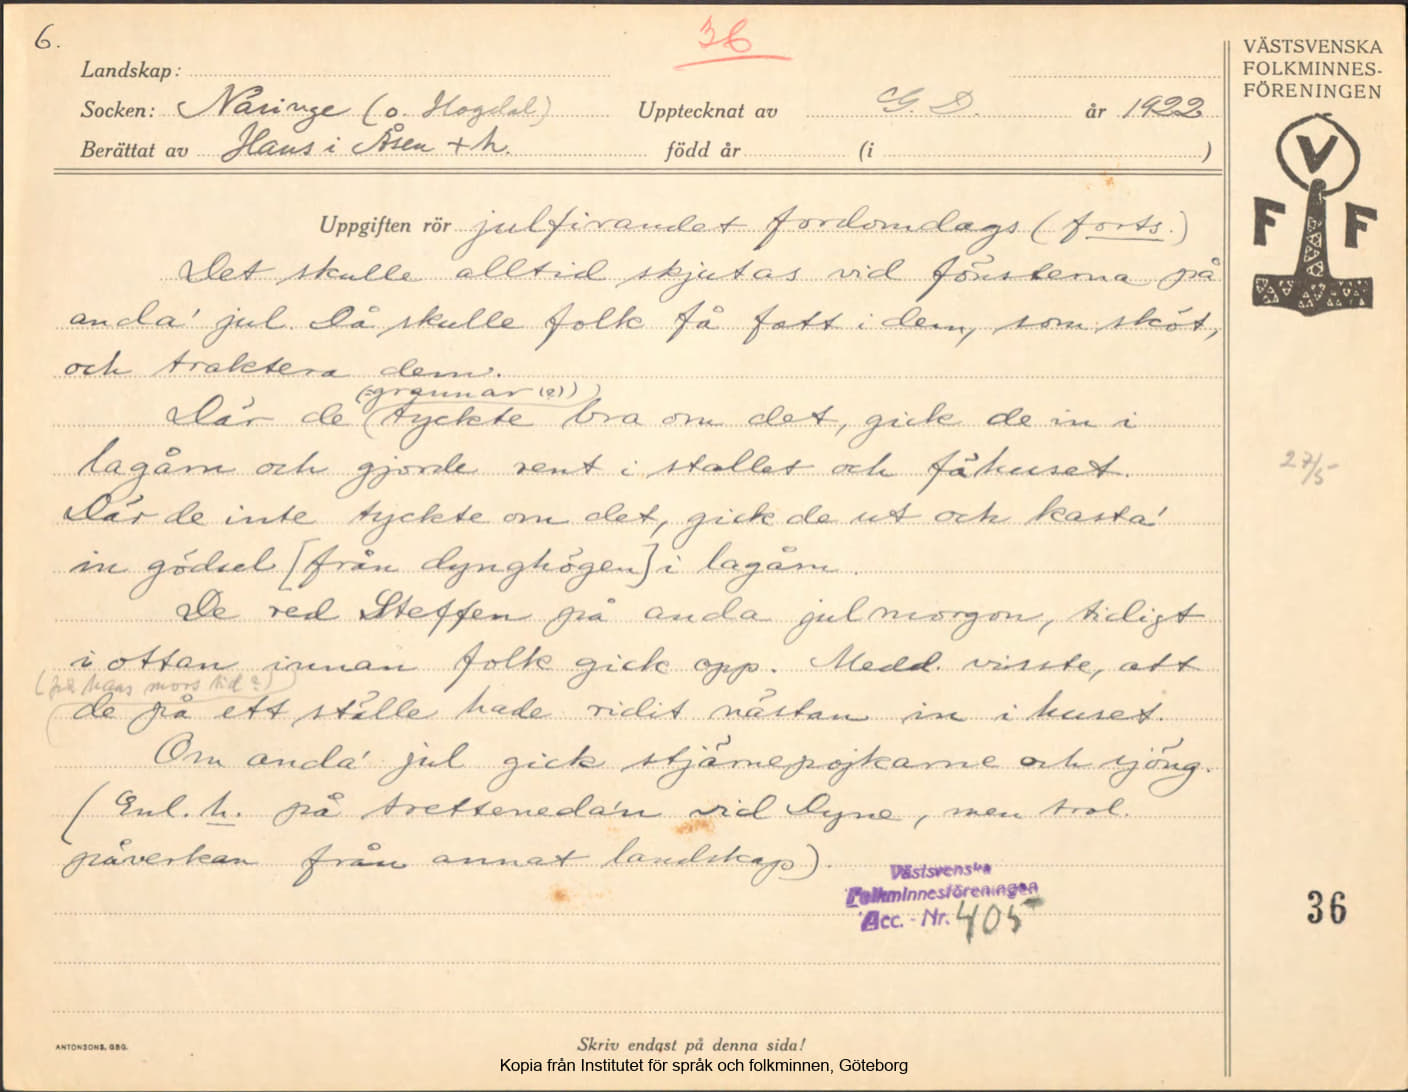 6.
36
Landskap:
Socken: Näsinge (o. Hogdal) Upptecknat av G. D. år 1922
Berättat av Hans i Åsen + h. född år (i )
Uppgiften rör julfirandet fordomdags (forts.)
Det skulle alltid skjutas vid fönsterna på
anda' jul. Då skulle folk få fatt i dem, som sköt,
och traktera dem.
(=grannar (?))
Där de tyckte bra om det, gick de in i
lagårn och gjorde rent i stallet och fähuset.
Där de inte tyckte om det, gick de ut och kasta'
in gödsel [från dynghögen] i lagårn.
De red Steffen på anda julmorgon, tidigt
i ottan innan folk gick opp. Medd. visste, att
(på hans mors tid?)
de på ett ställe hade ridit nästan in i huset.
Om anda' jul gick stjärnepojkarne och sjöng.
(Enl. h. på tretteneda'n vid Dyne, men trol.
påverkan från annat landskap).
Västsvenska
Folkminnesföreningen
Acc. - Nr. 405
VÄSTSVENSKA
FOLKMINNES-
FÖRENINGEN
V
F F
27/5
36
ANTONSONS, GBG.
Skriv endast på denna sida!
Kopia från Institutet för språk och folkminnen, Göteborg